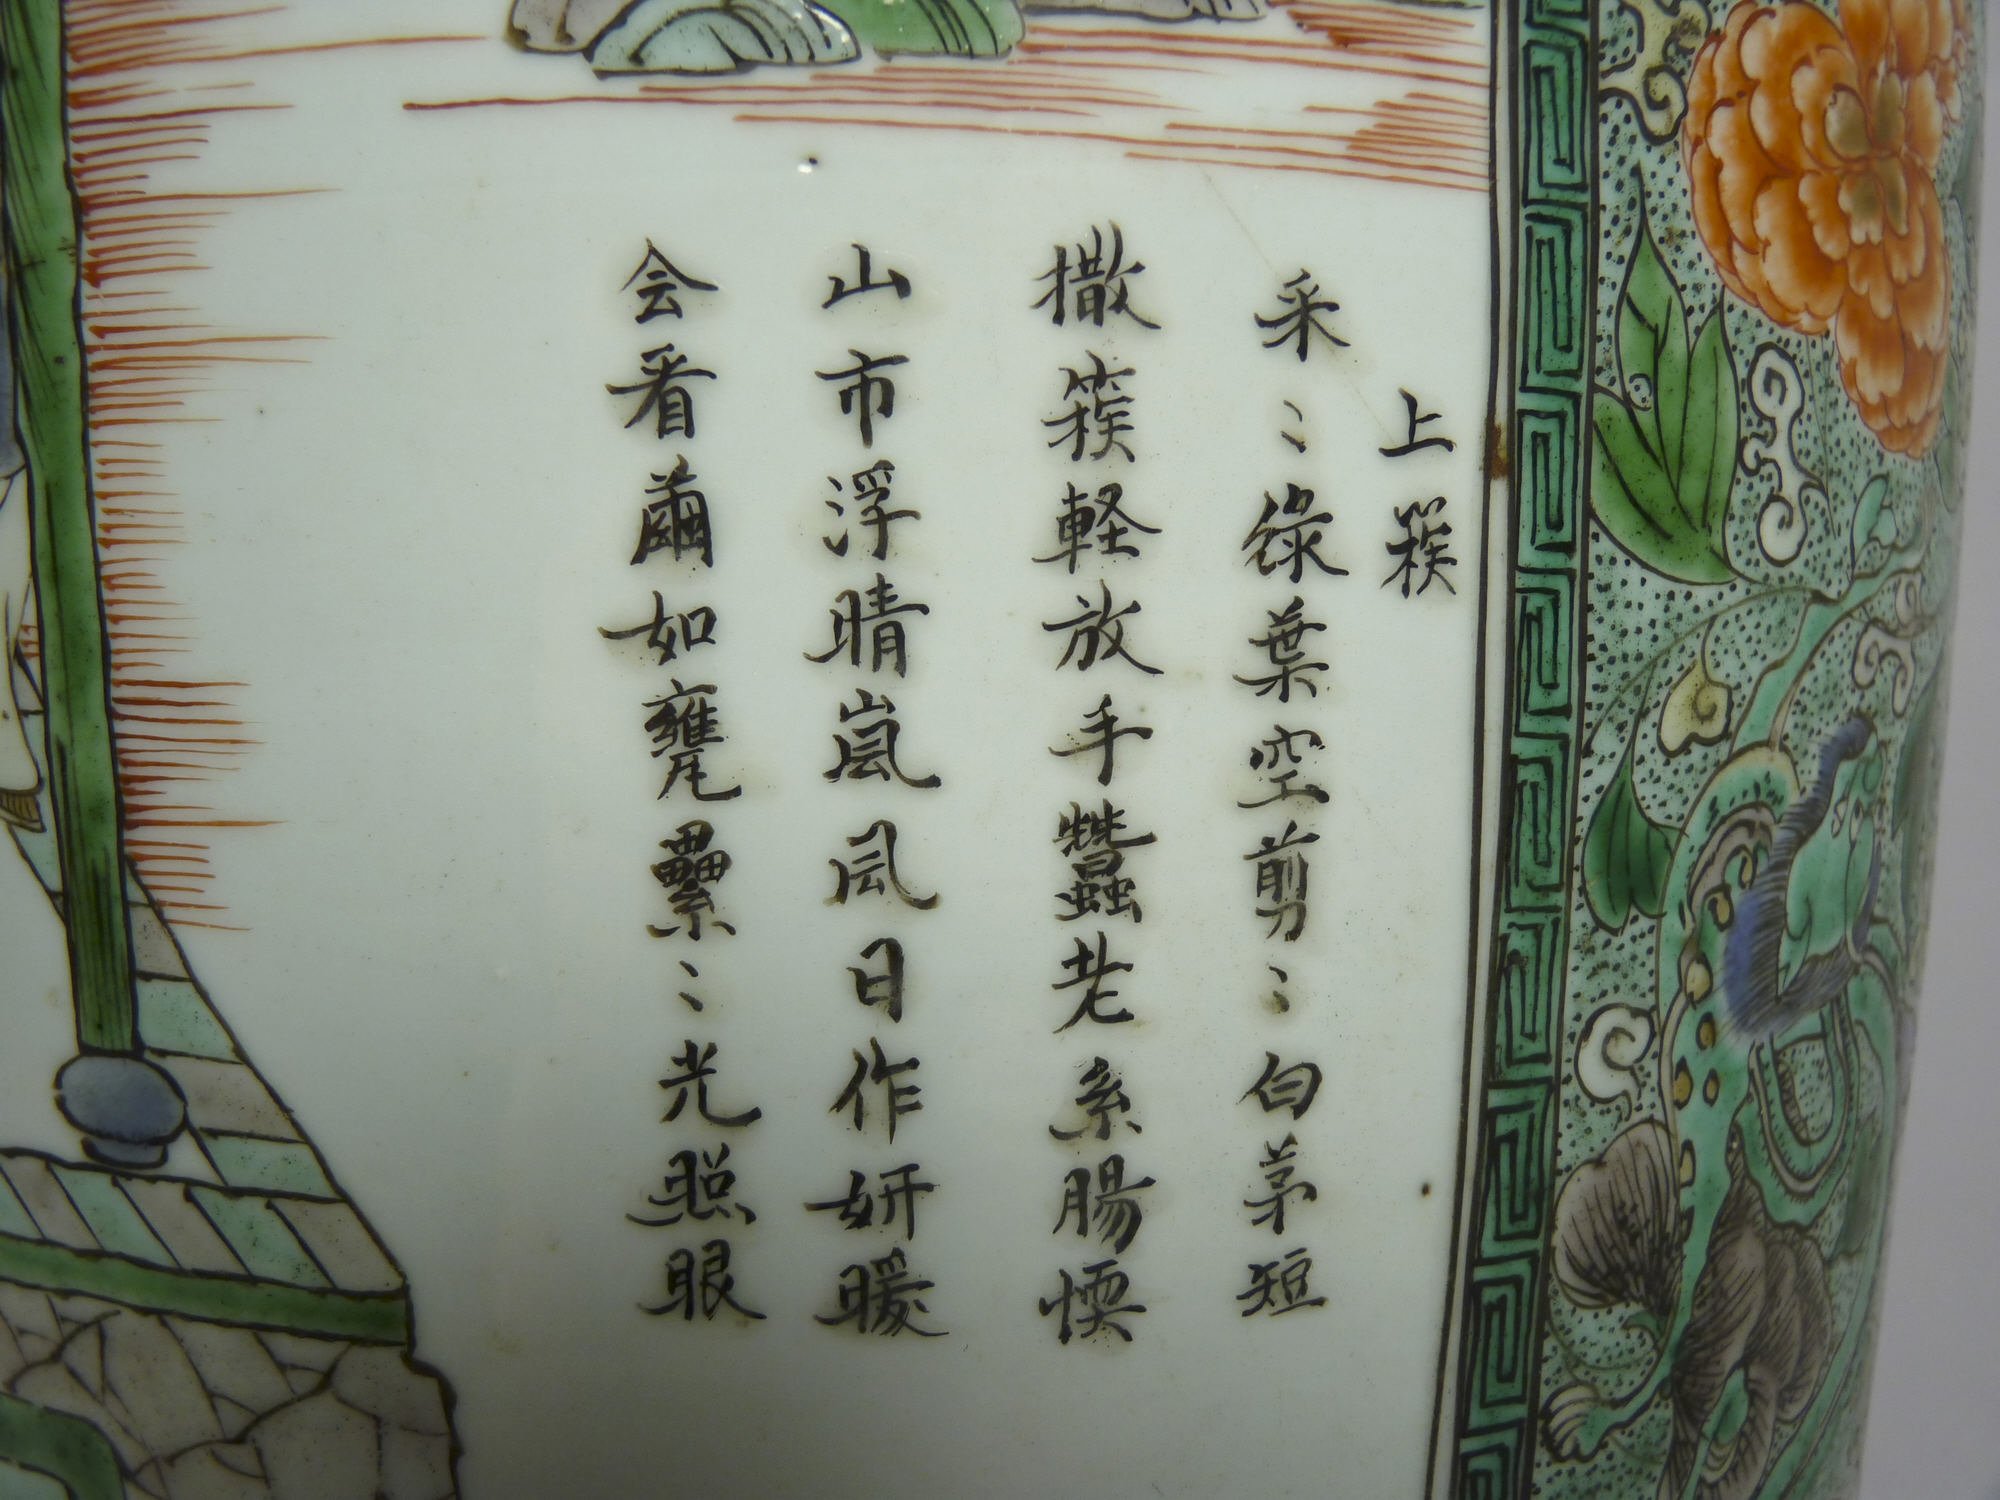 上簇
采〻綠葉空剪〻白茅短
撒簇軽放手蠶老糸腸愞
山市浮晴嵐風日作妍暖
会看繭如甕纍〻光照眼